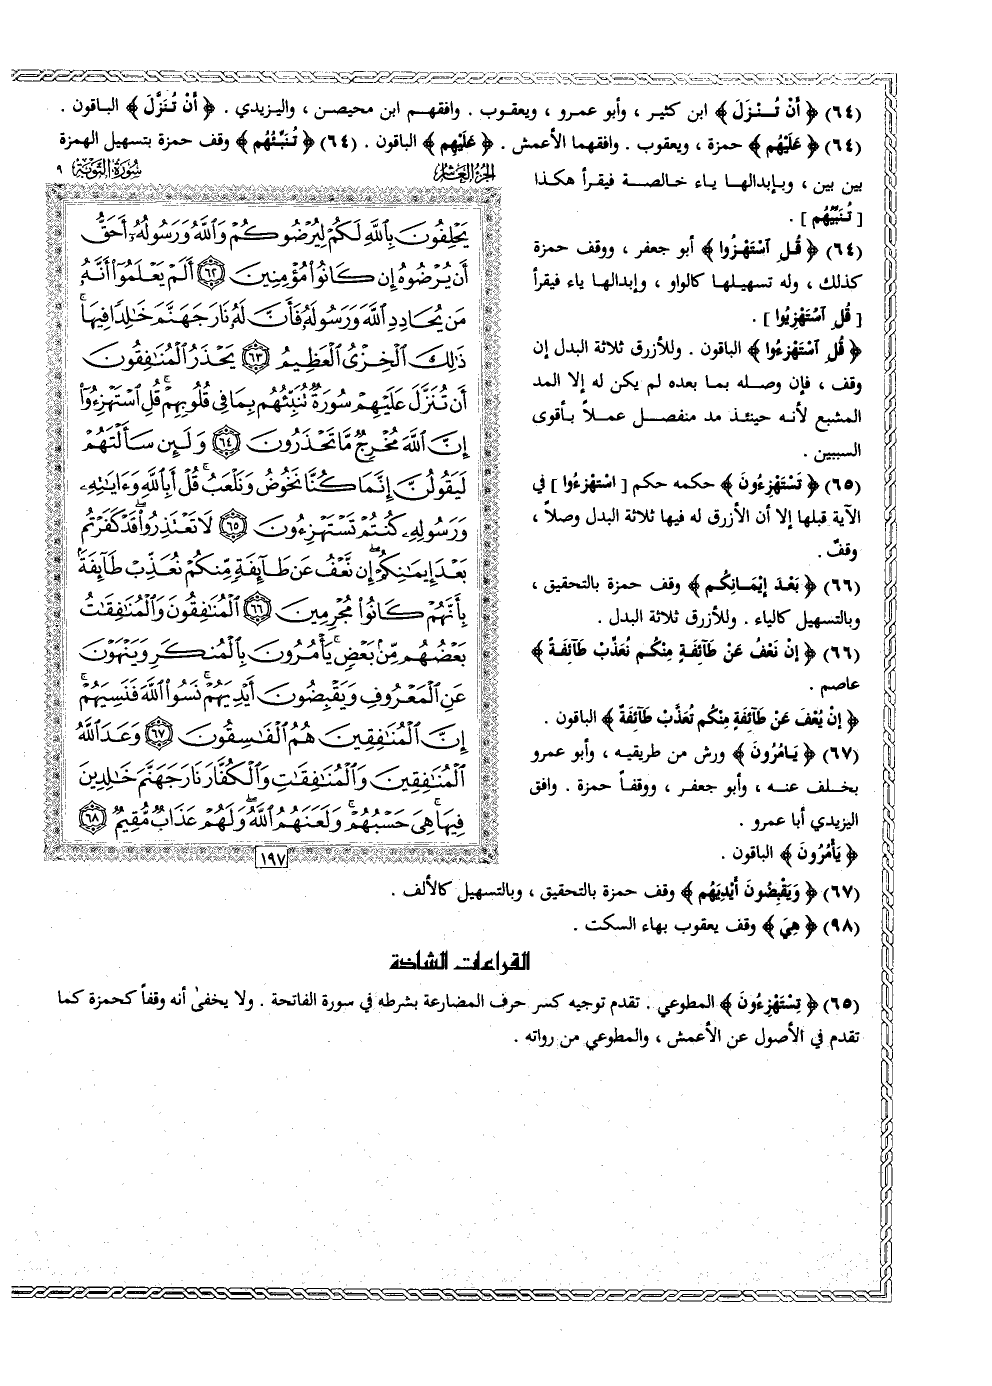 (٦٤) ﴿ أَنْ تُـنْزَلَ ﴾ ابن كثير ، وأبو عمرو ، ويعقوب . وافقهم ابن محيصن ، واليزيدي . ﴿ أَنْ تُنَزَّلَ ﴾ الباقون .
(٦٤) ﴿ عَلَيْهُم ﴾ حمزة ، ويعقوب . وافقهما الأعمش . ﴿ عَلَيْهِم ﴾ الباقون . (٦٤) ﴿ تُنَبِّئُهُم ﴾ وقف حمزة بتسهيل الهمزة
بين بين ، وبإبدالها ياء خالصة فيقرأ هكذا
[ تُنَبِّيُهُم ] .
(٦٤) ﴿ قُـلِ آسْتَهْزُوا ﴾ أبو جعفر ، ووقف حمزة
كذلك ، وله تسهيلها كالواو ، وإبدالها ياء فيقرأ
[ قُلِ آسْتَهْزِيُوا ] .
﴿ قُلِ آسْتَهْزِءُوا ﴾ الباقون . وللأزرق ثلاثة البدل إن
وقف ، فإن وصله بما بعده لم يكن له إلا المد
المشبع لأنه حينئذ مد منفصل عملاً بأقوى
السببين .
(٦٥) ﴿ تَسْتَهْزِءُونَ ﴾ حكمه حكم [ اسْتَهْزِءُوا ] في
الآية قبلها إلا أن الأزرق له فيها ثلاثة البدل وصلاً ،
وقفٌ .
(٦٦) ﴿ بَعْدَ إِيْمَانِكُم ﴾ وقف حمزة بالتحقيق ،
وبالتسهيل كالياء . وللأزرق ثلاثة البدل .
(٦٦) ﴿ إِنْ نَعْفُ عَنْ طَآئِفَةٍ مِنْكُم نُعَذِّبْ طَآئِفَةً ﴾
عاصم .
﴿ إِنْ يُعْفَ عَنْ طَآئِفَةٍ مِنْكُم تُعَذَّبْ طَآئِفَةٌ ﴾ الباقون .
(٦٧) ﴿ يَامُرُونَ ﴾ ورش من طريقيه ، وأبو عمرو
بخلف عنه ، وأبو جعفر ، ووقفاً حمزة . وافق
اليزيدي أبا عمرو .
﴿ يَأْمُرُونَ ﴾ الباقون .
سُورَةُ التَّوبَةِ ٩
الجُزءُ العَاشِرُ
يَحْلِفُونَ بِٱللَّهِ لَكُمْ لِيُرْضُوكُمْ وَٱللَّهُ وَرَسُولُهُۥٓ أَحَقُّ
أَن يُرْضُوهُ إِن كَانُوا۟ مُؤْمِنِينَ ٦٢ أَلَمْ يَعْلَمُوٓا۟ أَنَّهُۥ
مَن يُحَادِدِ ٱللَّهَ وَرَسُولَهُۥ فَأَنَّ لَهُۥ نَارَ جَهَنَّمَ خَٰلِدًا فِيهَا ۚ
ذَٰلِكَ ٱلْخِزْىُ ٱلْعَظِيمُ ٦٣ يَحْذَرُ ٱلْمُنَٰفِقُونَ
أَن تُنَزَّلَ عَلَيْهِمْ سُورَةٌ تُنَبِّئُهُم بِمَا فِى قُلُوبِهِمْ ۚ قُلِ ٱسْتَهْزِءُوٓا۟
إِنَّ ٱللَّهَ مُخْرِجٌ مَّا تَحْذَرُونَ ٦٤ وَلَئِن سَأَلْتَهُمْ
لَيَقُولُنَّ إِنَّمَا كُنَّا نَخُوضُ وَنَلْعَبُ ۚ قُلْ أَبِٱللَّهِ وَءَايَٰتِهِۦ
وَرَسُولِهِۦ كُنتُمْ تَسْتَهْزِءُونَ ٦٥ لَا تَعْتَذِرُوا۟ قَدْ كَفَرْتُم
بَعْدَ إِيمَٰنِكُمْ ۚ إِن نَّعْفُ عَن طَآئِفَةٍ مِّنكُمْ نُعَذِّبْ طَآئِفَةًۢ
بِأَنَّهُمْ كَانُوا۟ مُجْرِمِينَ ٦٦ ٱلْمُنَٰفِقُونَ وَٱلْمُنَٰفِقَٰتُ
بَعْضُهُم مِّنۢ بَعْضٍ ۚ يَأْمُرُونَ بِٱلْمُنكَرِ وَيَنْهَوْنَ
عَنِ ٱلْمَعْرُوفِ وَيَقْبِضُونَ أَيْدِيَهُمْ ۚ نَسُوا۟ ٱللَّهَ فَنَسِيَهُمْ ۗ
إِنَّ ٱلْمُنَٰفِقِينَ هُمُ ٱلْفَٰسِقُونَ ٦٧ وَعَدَ ٱللَّهُ
ٱلْمُنَٰفِقِينَ وَٱلْمُنَٰفِقَٰتِ وَٱلْكُفَّارَ نَارَ جَهَنَّمَ خَٰلِدِينَ
فِيهَا ۚ هِىَ حَسْبُهُمْ ۚ وَلَعَنَهُمُ ٱللَّهُ ۖ وَلَهُمْ عَذَابٌ مُّقِيمٌ ٦٨
١٩٧
(٦٧) ﴿ وَيَقْبِضُونَ أَيْدِيَهُم ﴾ وقف حمزة بالتحقيق ، وبالتسهيل كالألف .
(٩٨) ﴿ هِيَ ﴾ وقف يعقوب بهاء السكت .
القراءات الشاذة
(٦٥) ﴿ تِسْتَهْزِءُونَ ﴾ المطوعي . تقدم توجيه كسر حرف المضارعة بشرطه في سورة الفاتحة . ولا يخفىٰ أنه وقفاً كحمزة كما
تقدم في الأصول عن الأعمش ، والمطوعي من رواته .